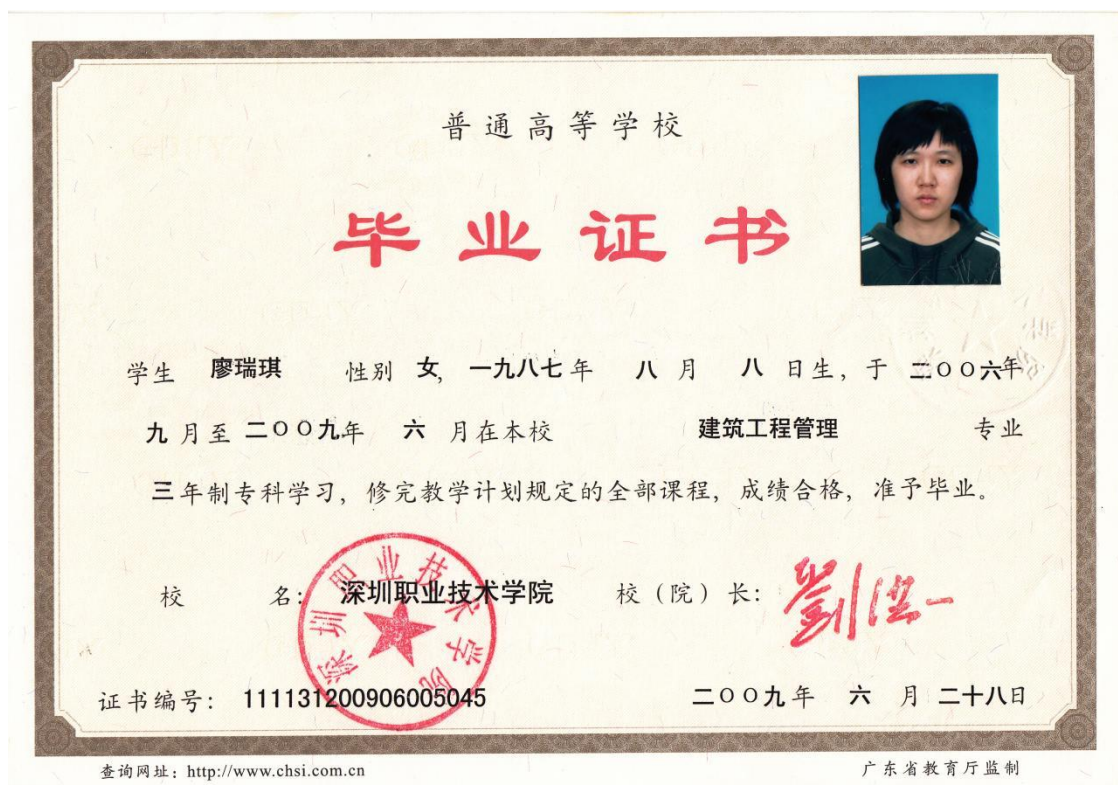 普通高等学校
毕业证书
学生 廖瑞琪 性别 女, 一九八七年 八 月 八 日生, 于 二〇〇六年
九 月至 二〇〇九年 六 月在本校 建筑工程管理 专业
三年制专科学习, 修完教学计划规定的全部课程, 成绩合格, 准予毕业。
校 名: 深圳职业技术学院 校(院)长: 劉洪一
深圳职业技术学院
证书编号: 111131200906005045 二〇〇九年 六 月 二十八日
查询网址: http://www.chsi.com.cn 广东省教育厅监制